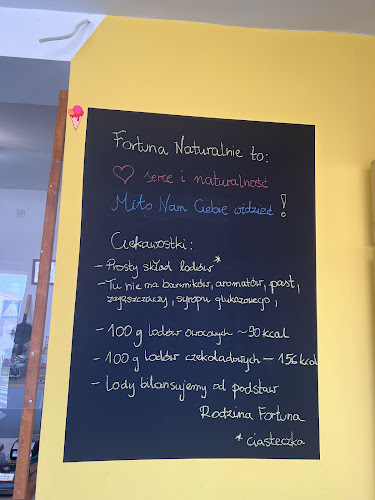 Fortuna Naturalnie to:
♡ serce i naturalność
Miło Nam Ciebie widzieć !
Ciekawostki:
- Prosty skład lodów*
- Tu nie ma barwników, aromatów, past,
zagęszczaczy, syropu glukozowego,
- 100g lodów owocowych ~90 kcal
- 100g lodów czekoladowych - 156 kcal
- Lody bilansujemy od podstaw
Rodzina Fortuna
* ciasteczka